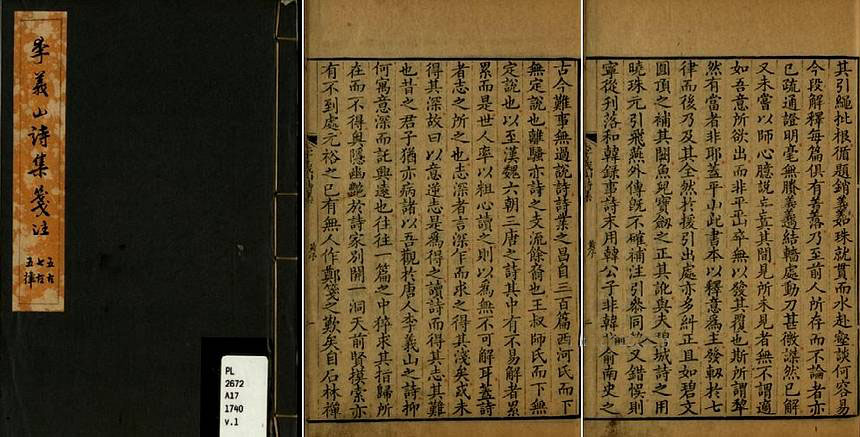 李義山詩集箋注
五古
七古
五律
PL
2672
A17
1740
v.1
古今難事無過說詩詩業之昌自三百篇西河氏而下
無定說也離騷亦詩之支流餘裔也王叔師氏而下無
定說也以至漢魏六朝三唐之詩其中有不易解者累
累而是世人率以粗心讀之則以為無不可解耳蓋詩
者志之所之也志深者言深乍而求之得其淺矣或未
得其深故曰以意逆志是爲得之讀詩而得其志其難
也昔之君子猶亦病諸以吾觀於唐人李義山之詩抑
何寓意深而託興遠也往往一篇之中猝求其指歸所
在而不得奧隱幽艷於詩家別開一洞天前賢摸索亦
有不到處元裕之已有無人作鄭箋之歎矣自石林禪
其引繩批根循題銷義如珠就貫而水赴壑談何容易
今段解釋每篇俱有著落乃至前人所存而不論者亦
已疏通證明毫無賸義遇結轖處動刀甚微謋然已解
又未嘗以師心臆說真其間見所未見者無不謂適
如吾意所欲出而非平山卒無以發其覆也斯所謂犂
然有當者非耶蓋平山此書本以釋意爲主發軔於七
律而後乃及其全然於援引出處亦多糾正且如碧文
圓頂之補其闕魚兒寶劒之正其訛與夫碧城詩之用
曉珠元引飛燕外傳旣不確補注引參同契又錯悮則
寧從刋落和韓錄事詩末用韓公子非韓俞南史之